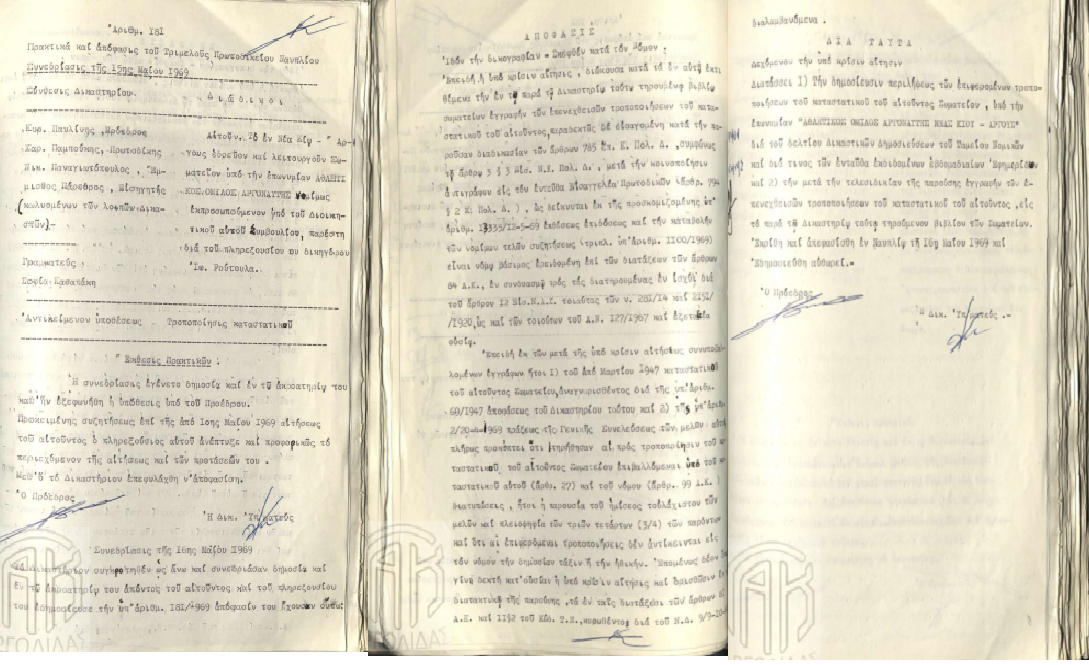 Ἀριθμ. 181
Πρακτικά καί ἀπόφασις τοῦ Τριμελοῦς Πρωτοδικείου Ναυπλίου
Συνεδρίασις τῆς 15ης Μαΐου 1969
Σύνθεσις Δικαστηρίου. Διάδικοι
Κυρ. Παυλίνης, Πρόεδρος Αἰτοῦν. Τό ἐν Νέα Κίῳ - Ἀρ-
Χαρ. Παμπούκης, Πρωτοδίκης γους ἑδρεῦον καί λειτουργοῦν Σω-
Νικ. Παναγιωτόπουλος, Ἔμ- ματεῖον ὑπό τήν ἐπωνυμίαν ΑΘΛΗΤΙ
μισθος Πάρεδρος, Εἰσηγητής ΚΟΣ ΟΜΙΛΟΣ ΑΡΓΟΝΑΥΤΗΣ νομίμως
(κωλυομένων τῶν λοιπῶν Δικα- ἐκπροσωπούμενον ὑπό τοῦ Διοικη-
στῶν).- τικοῦ αὐτοῦ Συμβουλίου, παρέστη
διά τοῦ πληρεξουσίου του δικηγόρου
Γραμματεύς Ἰω. Ρούτουλα.
Σοφία Κασαπάκη
Ἀντικείμενον ὑποθέσεως Τροποποίησις καταστατικοῦ
Ἔκθεσις Πρακτικῶν :
Ἡ συνεδρίασις ἐγένετο δημοσία καί ἐν τῷ ἀκροατηρίῳ του
καθ' ἥν ἐξεφωνήθη ἡ ὑπόθεσις ὑπό τοῦ Προέδρου.
Προκειμένης συζητήσεως ἐπί τῆς ἀπό 1οης Μαΐου 1969 αἰτήσεως
τοῦ αἰτοῦντος ὁ πληρεξούσιος αὐτοῦ ἀνέπτυξε καί προφορικῶς τό
περιεχόμενον τῆς αἰτήσεως καί τῶν προτάσεών του .
Μεθ' ὅ τό Δικαστήριον ἐπεφυλάχθη ν'ἀποφασίση.
Ὁ Πρόεδρος
Ἡ Δικ. Ὑπ/ματεύς
Συνεδρίασις τῆς 16ης Μαΐου 1969
Τό Δικαστήριον συγκροτηθέν ὡς ἄνω καί συνεδριάσαν δημοσία καί
ἐν τῷ ἀκροατηρίῳ του ἀπόντος τοῦ αἰτοῦντος καί τοῦ πληρεξουσίου
του ἐδημοσίευσε τήν ὑπ'ἀριθμ. 181/1969 ἀπόφασίν του ἔχουσαν οὕτω:
ΑΠΟΦΑΣΙΣ
Ἰδόν τήν δικογραφίαν = Σκεφθέν κατά τόν Νόμον
Ἐπειδή ἡ ὑπό κρίσιν αἴτησις, διώκουσα κατά τά ἐν αὐτῇ ἐκτι
θέμενα τήν ἐν τῷ παρά τῷ Δικαστηρίῳ τούτῳ τηρουμένῳ βιβλίῳ
σωματείων ἐγγραφήν τῶν ἐπενεχθεισῶν τροποποιήσεων τοῦ κατα-
στατικοῦ τοῦ αἰτοῦντος, παραδεκτῶς δέ εἰσαγομένη κατά τήν πα-
ροῦσαν διαδικασίαν τῶν ἄρθρων 785 ἑπ. Κ. Πολ. Δ., συμφώνως
τῷ ἄρθρῳ 3 § 3 Εἰσ. Ν.Κ. Πολ. Δ., μετά τήν κοινοποίησιν
ἀντιγράφου εἰς τόν ἐνταῦθα Εἰσαγγελέα Πρωτοδικῶν (ἄρθρ. 794
§ 2 Κ. Πολ. Δ. ), ὡς δείκνυται ἐκ τῆς προσκομιζομένης ὑπ'
ἀριθμ. 13335/12-5-69 ἐκθέσεως ἐπιδόσεως καί τήν καταβολήν
τῶν νομίμων τελῶν συζητήσεως (τριπλ. ὑπ'ἀριθμ. 1100/1969)
εἶναι νόμῳ βάσιμος ἐρειδομένη ἐπί τῶν διατάξεων τῶν ἄρθρων
84 Α.Κ., ἐν συνδυασμῷ πρός τάς διατηρουμένας ἐν ἰσχύϊ διά
τοῦ ἄρθρου 12 Εἰσ.Ν.Α.Κ. τοιαύτας τῶν ν. 281/14 καί 2151
/1920, ὡς καί τῶν τοιούτων τοῦ Α.Ν. 127/1967 καί ἐξεταστέα
οὐσίᾳ.
Ἐπειδή ἐκ τῶν μετά τῆς ὑπό κρίσιν αἰτήσεως συνυποβα
λομένων ἐγγράφων ἤτοι 1) τοῦ ἀπό Μαρτίου 1947 καταστατικοῦ
τοῦ αἰτοῦντος Σωματείου, ἀναγνωρισθέντος διά τῆς ὑπ'ἀριθμ.
69/1947 ἀποφάσεως τοῦ Δικαστηρίου τούτου καί 2) τῆς ὑπ'ἀριθμ.
2/20-4-1969 πράξεως τῆς Γενικῆς Συνελεύσεως τῶν μελῶν αὐτοῦ
πλήρως προκύπτει ὅτι ἐτηρήθησαν αἱ πρός τροποποίησιν τοῦ κα
ταστατικοῦ τοῦ αἰτοῦντος Σωματείου ἐπιβαλλόμεναι ὑπό τοῦ κα
ταστατικοῦ αὐτοῦ (ἄρθρ. 27) καί τοῦ νόμου (ἄρθρ. 99 Α.Κ.)
διατυπώσεις, ἤτοι ἡ παρουσία τοῦ ἡμίσεος τοὐλάχιστον τῶν
μελῶν καί πλειοψηφία τῶν τριῶν τετάρτων (3/4) τῶν παρόντων
καί ὅτι αἱ ἐπιφερόμεναι τροποποιήσεις δέν ἀντίκεινται εἰς
τόν νόμον τήν δημοσίαν τάξιν ἤ τήν ἠθικήν. Ἑπομένως δέον
γίνῃ δεκτή κατ'οὐσίαν ἡ ὑπό κρίσιν αἴτησις καί ὁρισθῶσιν ἐν
διατακτικῷ τῆς παρούσης, τά ἐν ταῖς διατάξεσι τῶν ἄρθρων
Α.Κ. καί 11§2 τοῦ Κώδ. Τ.Ν., κυρωθέντος διά τοῦ Ν.Δ. 9/9-10-
διαλαμβανόμενα .
ΔΙΑ ΤΑΥΤΑ
Δεχόμενον τήν ὑπό κρίσιν αἴτησιν
Διατάσσει 1) Τήν δημοσίευσιν περιλήψεως τῶν ἐπιφερομένων τροπο-
ποιήσεων τοῦ καταστατικοῦ τοῦ αἰτοῦντος Σωματείου, ὑπό τήν
ἐπωνυμίαν "ΑΘΛΗΤΙΚΟΣ ΟΜΙΛΟΣ ΑΡΓΟΝΑΥΤΗΣ ΝΕΑΣ ΚΙΟΥ - ΑΡΓΟΥΣ"
διά τοῦ δελτίου Δικαστικῶν Δημοσιεύσεων τοῦ Ταμείου Νομικῶν
καί διά τινος τῶν ἐνταῦθα ἐκδιδομένων ἑβδομαδιαίων Ἐφημερίδων
καί 2) τήν μετά τήν τελεσιδικίαν τῆς παρούσης ἐγγραφήν τῶν ἐ-
πενεχθεισῶν τροποποιήσεων τοῦ καταστατικοῦ τοῦ αἰτοῦντος, εἰς
τό παρά τῷ Δικαστηρίῳ τούτῳ τηρούμενον βιβλίον τῶν Σωματείων.
Ἐκρίθη καί ἀπεφασίσθη ἐν Ναυπλίῳ τῇ 16ῃ Μαΐου 1969 καί
Ἐδημοσιεύθη αὐθωρεί.=
Ὁ Πρόεδρος
Ἡ Δικ. Ὑπ/ματεύς .=